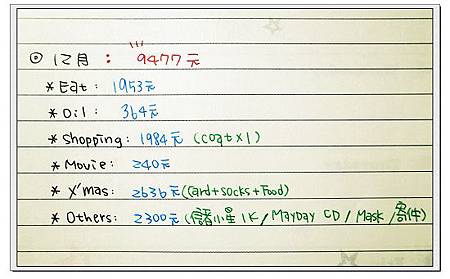 ◎ 12月 : 9477元
* Eat : 1953元
* Oil : 364元
* Shopping : 1984元 (coat×1)
* Movie : 240元
* X'mas : 2636元 (Card+socks+Food)
* Others : 2300元 (儲小星 1K / MAYDAY CD / Mask / 寄件)